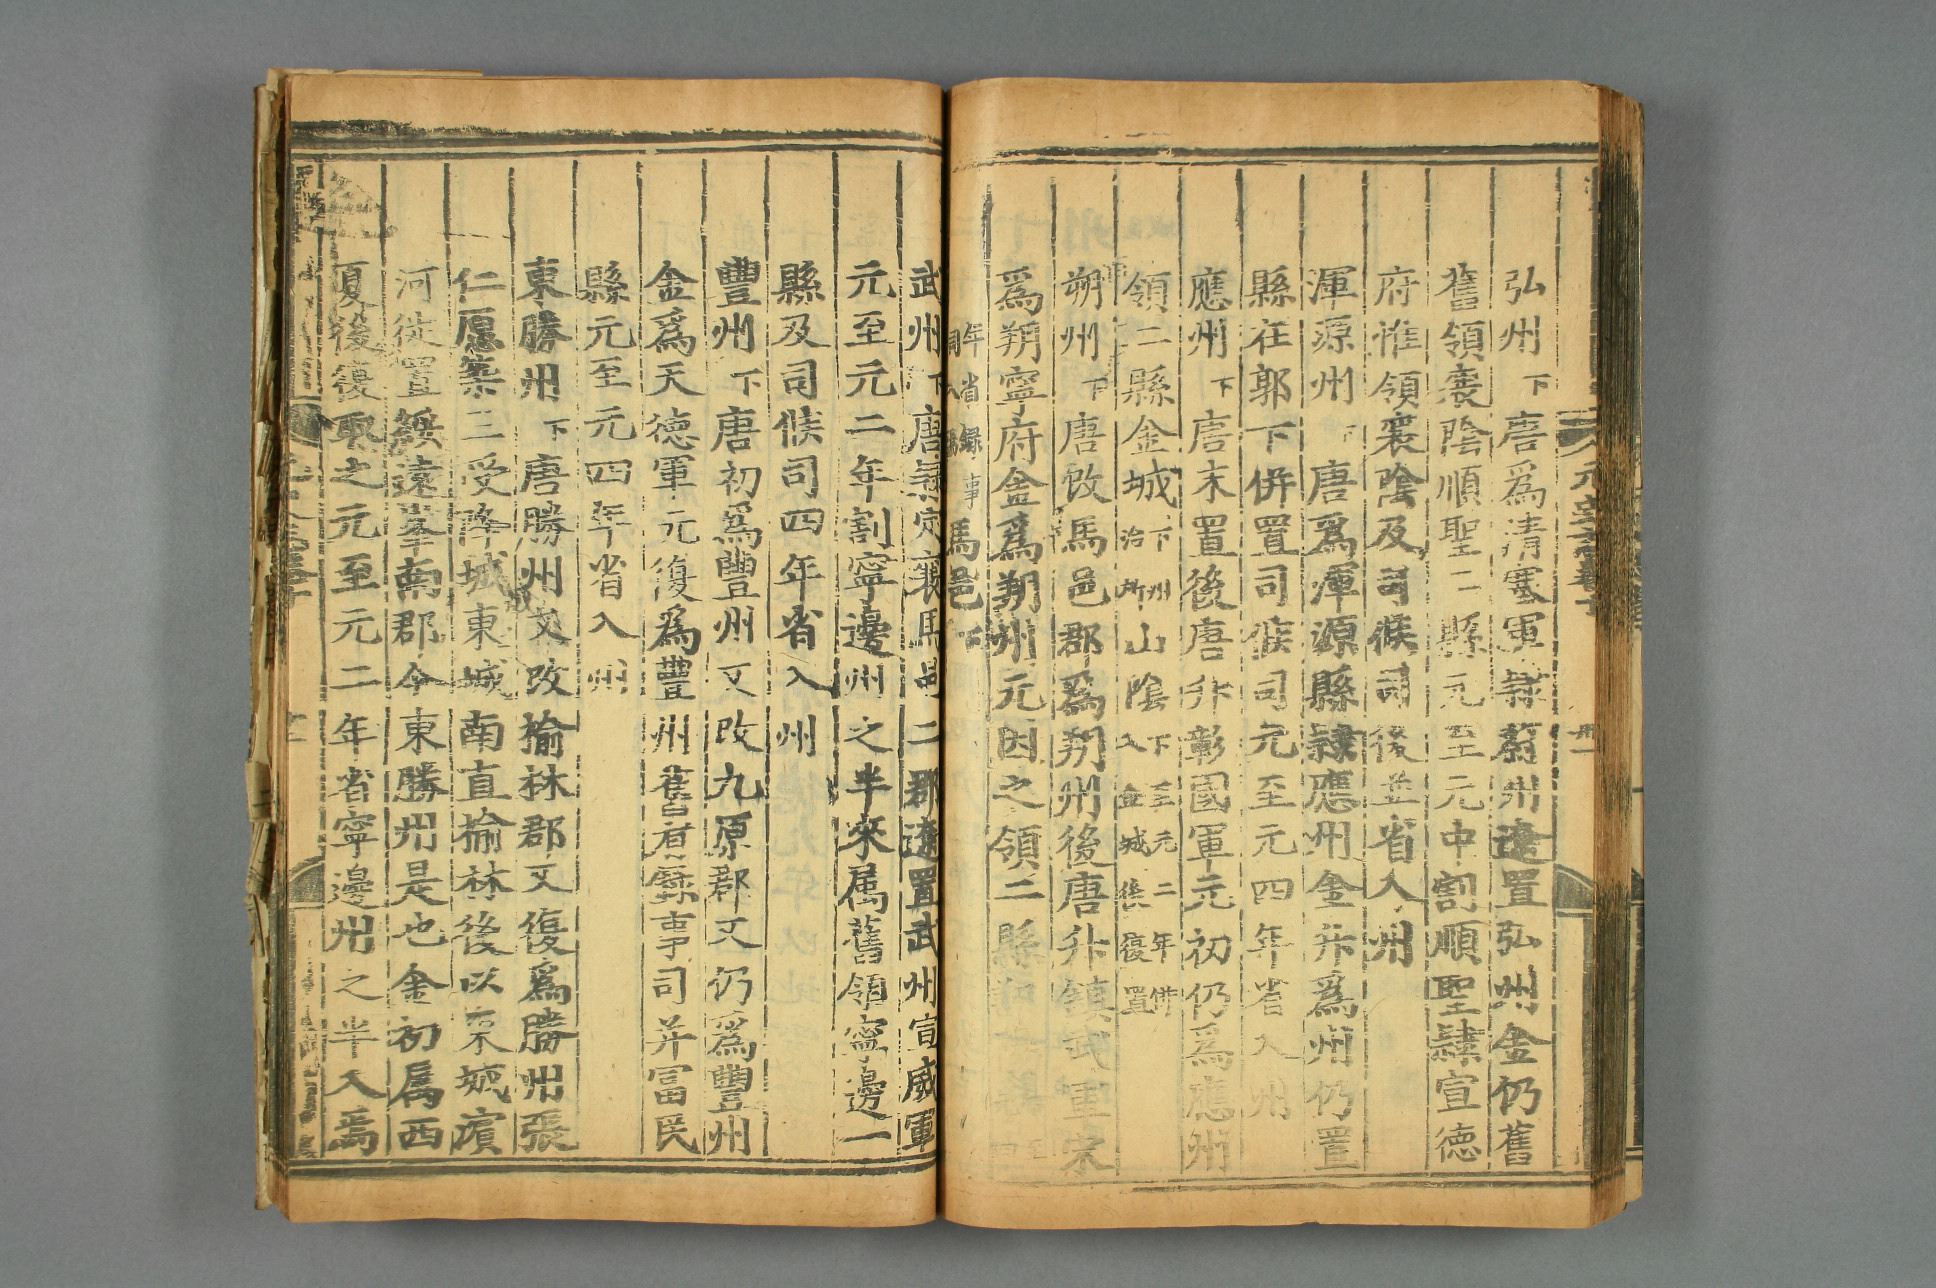 弘州下唐爲清塞軍隸蔚州遼置弘州金仍舊
舊領襄陰順聖二縣元至元中割順聖隸宣德
府惟領襄陰及司候司後並省入州
渾源州下唐爲渾源縣隸應州金升爲州仍置
縣在郭下併置司候司元至元四年省入州
應州下唐末置後唐升彰國軍元初仍爲應州
領二縣金城下州治所山陰下至元二年併入金城後復置
朔州下唐改馬邑郡爲朔州後唐升鎮武軍宋
爲朔寧府金爲朔州元因之領二縣
年省錄事馬邑下
武州下唐隸定襄馬邑二郡遼置武州宣威軍
元至元二年割寧邊州之半來屬舊領寧邊一
縣及司候司四年省入州
豐州下唐初爲豐州又改九原郡又仍爲豐州
金爲天德軍元復爲豐州舊有錄事司并富民
縣元至元四年省入州
東勝州下唐勝州又改榆林郡又復爲勝州張
仁愿築三受降城東城南直榆林後以東城濱
河徙置綏遠峯南郡今東勝州是也金初屬西
夏後復取之元至元二年省寧邊州之半入焉